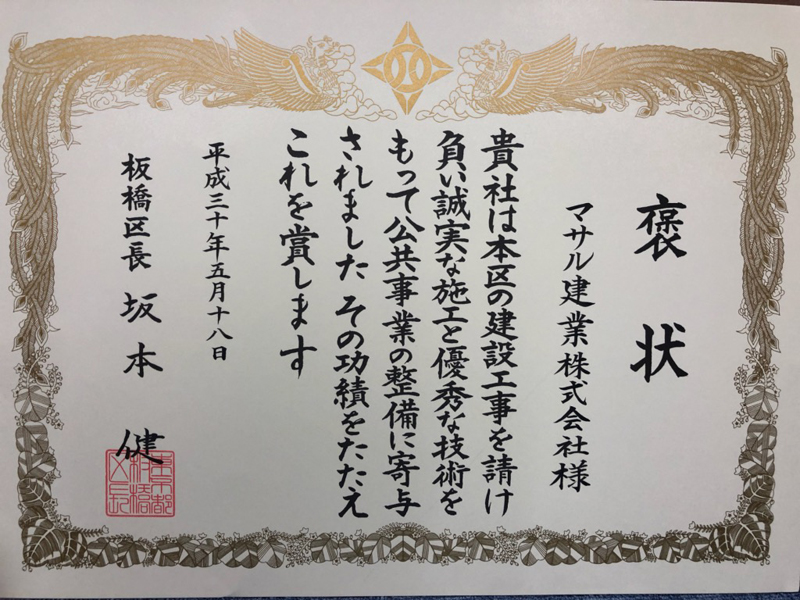 褒状
マサル建業株式会社様
貴社は本区の建設工事を請け
負い誠実な施工と優秀な技術を
もって公共事業の整備に寄与
されました その功績をたたえ
これを賞します
平成三十年五月十八日
板橋区長 坂本 健
東京都
板橋
区長